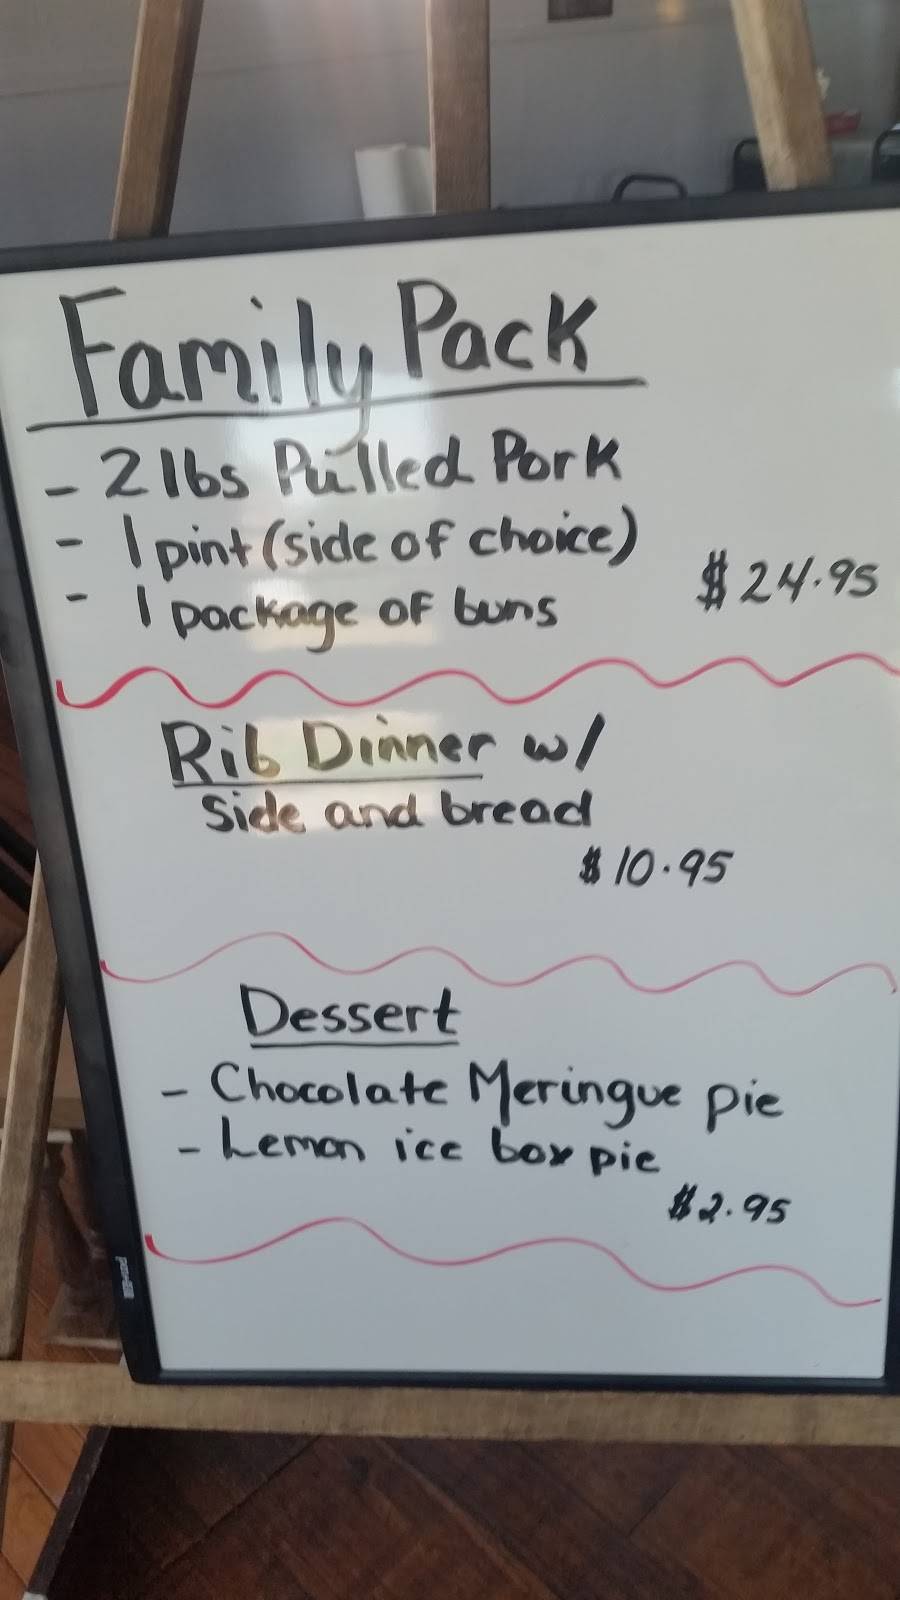 Family Pack
- 2 lbs Pulled Pork
- 1 pint (side of choice)
- 1 package of buns
$24.95
Rib Dinner w/
side and bread
$10.95
Dessert
- Chocolate Meringue pie
- Lemon ice box pie
$2.95